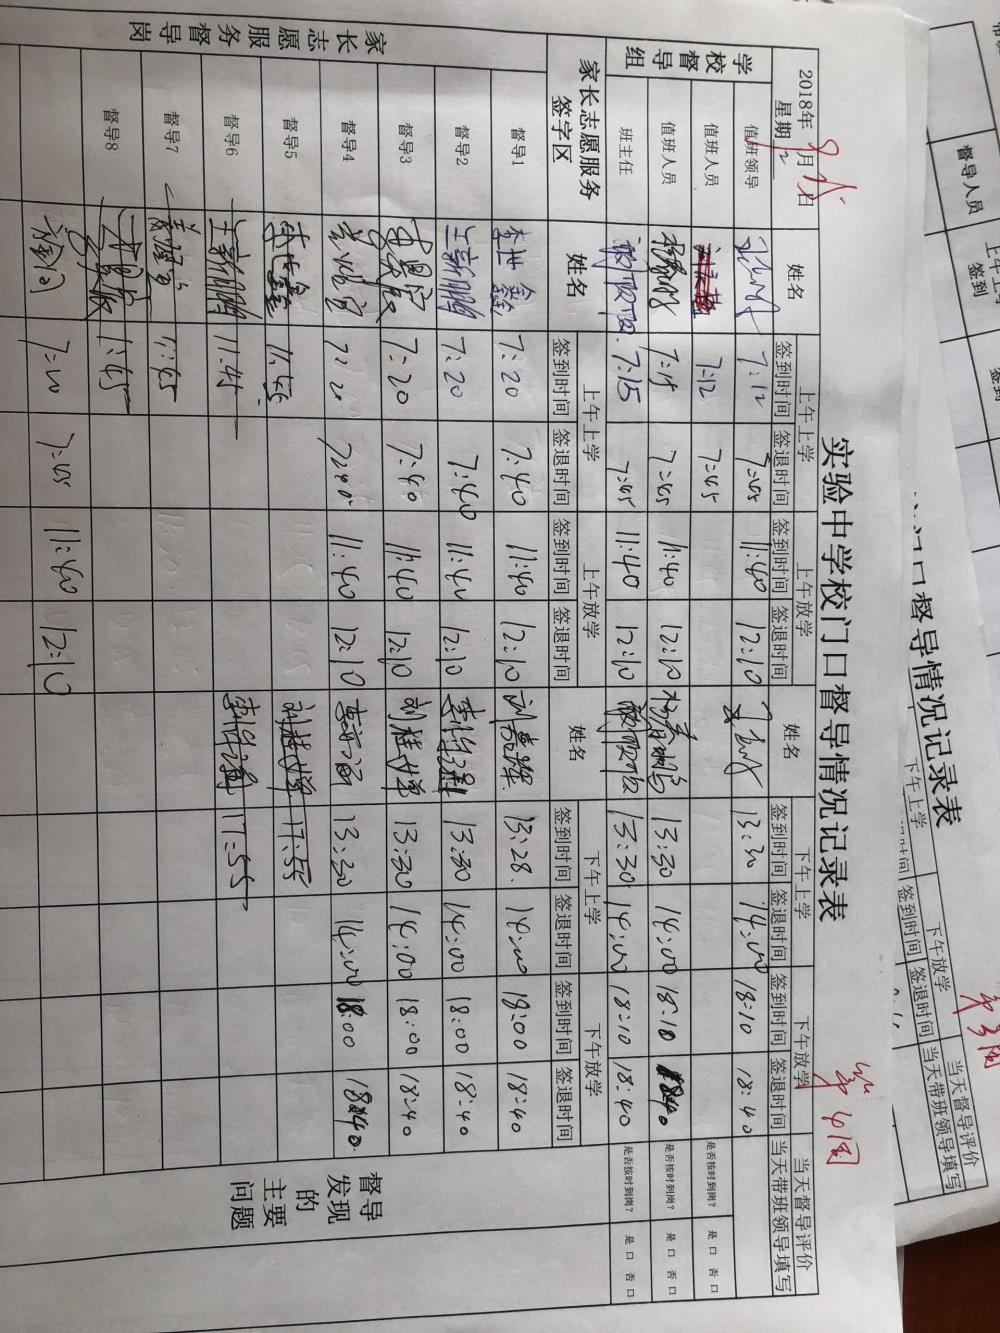 实验中学校门口督导情况记录表
第4周
2018年9月25日
星期2
姓名
上午上学
签到时间 签退时间
上午放学
签到时间 签退时间
姓名
下午上学
签到时间 签退时间
下午放学
签到时间 签退时间
当天督导评价
当天带班领导填写
学校督导组
值班领导 7:12 7:45 11:40 12:10 13:30 14:00 18:10 18:40
值班人员 7:12 7:45 是否按时到岗? 是 口 否 口
值班人员 7:15 7:45 11:40 12:10 13:30 14:00 18:10 18:40 是否按时到岗? 是 口 否 口
班主任 7:15 7:45 11:40 12:10 13:30 14:00 18:10 18:40 是否按时到岗? 是 口 否 口
家长志愿服务
签字区
姓名
上午上学
签到时间 签退时间
上午放学
签到时间 签退时间
姓名
下午上学
签到时间 签退时间
下午放学
签到时间 签退时间
家长志愿服务督导岗
督导1 李世鑫 7:20 7:40 11:40 12:10 13:28. 14:00 18:00 18:40
督导2 王新鹏 7:20 7:40 11:40 12:10 13:30 14:00 18:00 18:40
督导3 7:20 7:40 11:40 12:10 刘桂学 13:30 14:00 18:00 18:40
督导4 7:20 7:40 11:40 12:10 13:30 14:00 18:00 18:40
督导5 李世鑫 11:45 刘桂学 17:55
督导6 王新鹏 11:45 17:55
督导7 11:45
督导8 11:45
7:20 7:45 11:40 12:10
督导
发现
的
主要
问题
门口督导情况记录表
督导人员
上午上
签到
下午上学
签到时间
下午放学
签退时间
当天督导评价
当天带班领导填写